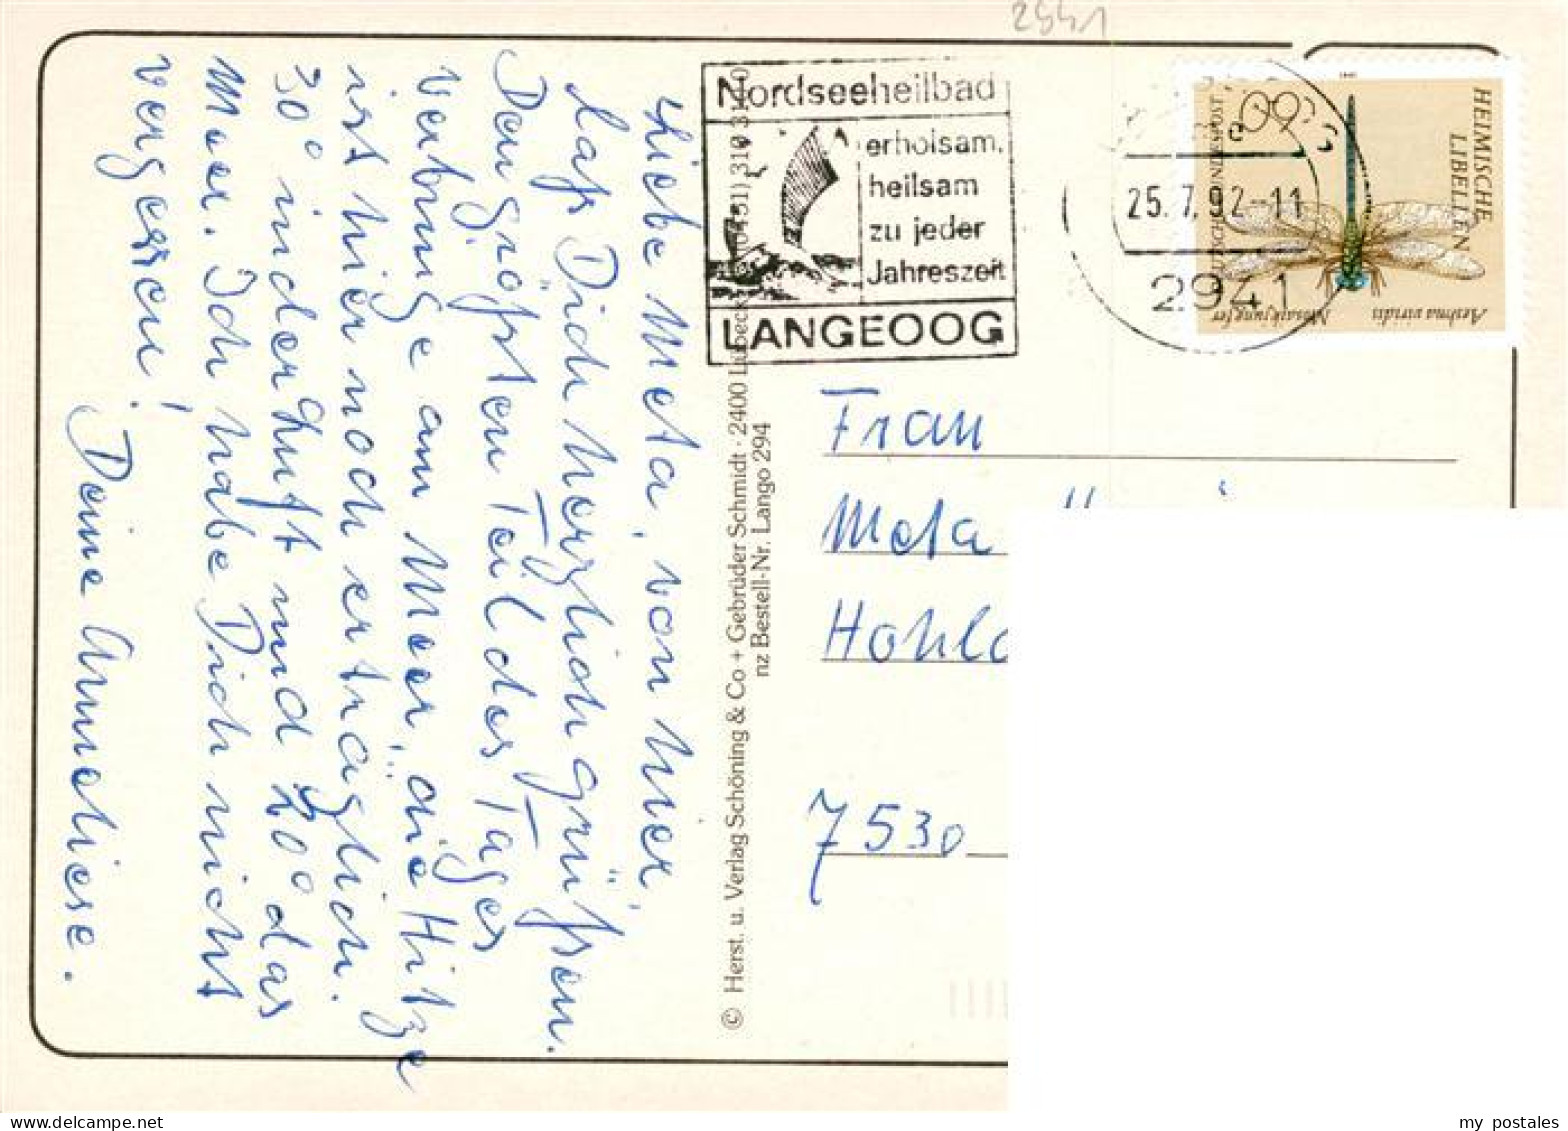 2941
Liebe Meta, von hier,
laß Dich herzlich grüßen.
Den größten Teil des Tages
verbringe am Meer, die Hitze
ist hier noch erträglich.
30° in der Luft und 20° das
Meer. Ich habe Dich nicht
vergessen!
Deine Anneliese.
© Herst. u. Verlag Schöning & Co + Gebrüder Schmidt · 2400 Lübeck
nz Bestell-Nr. Lango 294
Nordseeheilbad
erholsam,
heilsam
zu jeder
Jahreszeit
LANGEOOG
25.7.92-11
2941
60
HEIMISCHE
LIBELLEN
Aeshna viridis
Mosaikjungfer
Frau
Meta
Hohlo
7530
my postales